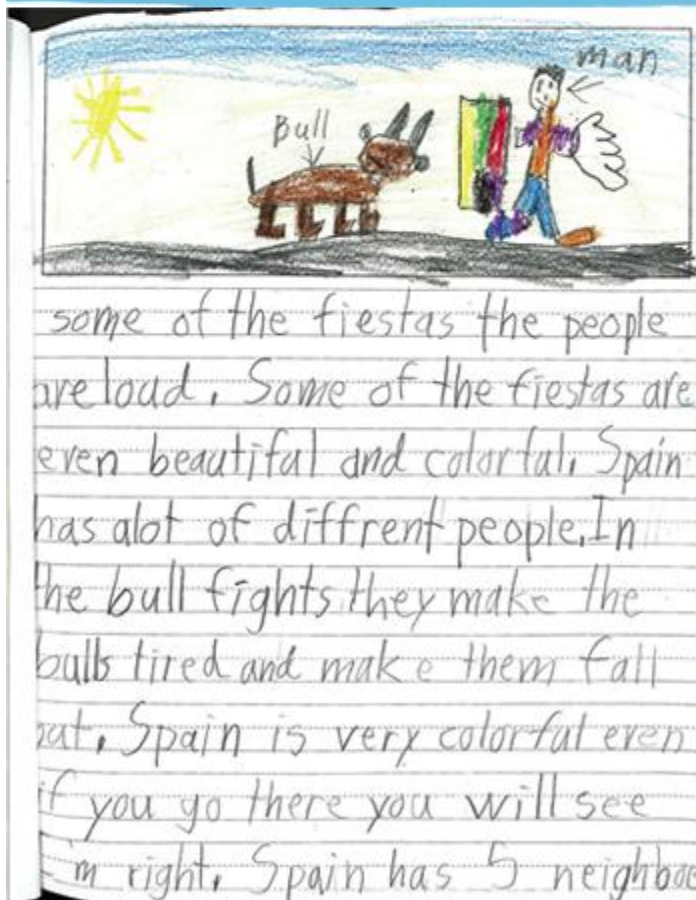 man
Bull
some of the fiestas the people
are load. Some of the fiestas are
even beautiful and colorful. Spain
has alot of diffrent people. In
the bull fights they make the
bulls tired and make them fall
Spain is very colorful even
if you go there you will see
I'm right. Spain has 5 neighbo